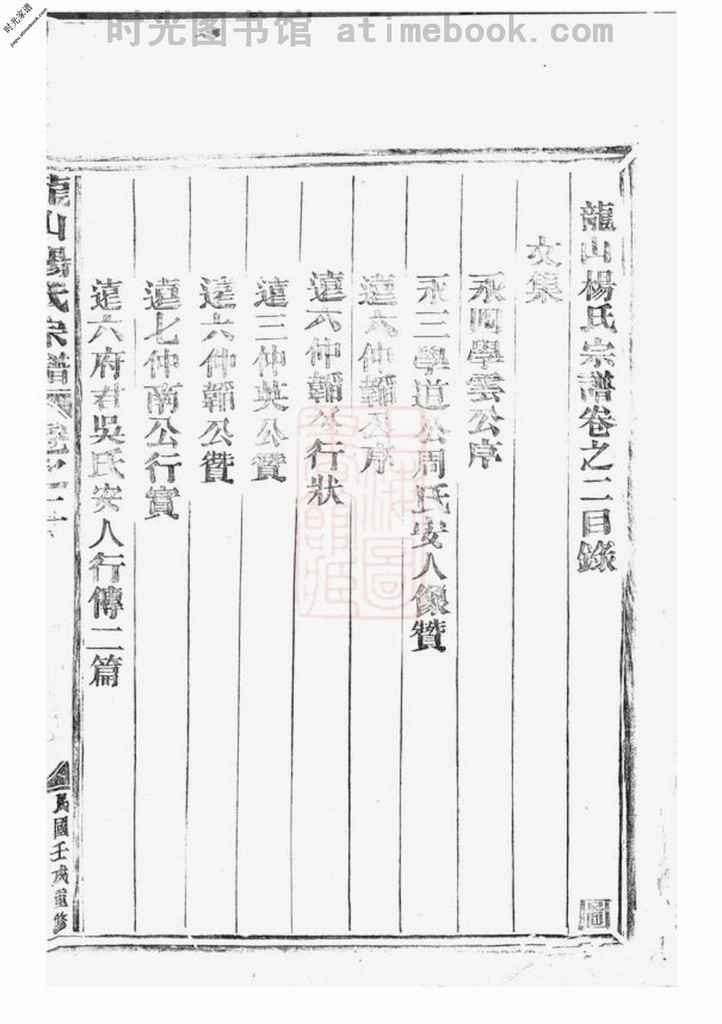 时光图书馆 atimebook.com
时光家谱
jiapu.atimebook.com
龍山楊氏宗譜卷之二目錄
文集
永四學雲公序
永三學道公周氏安人像贊
遠六仲韜公序
遠六仲韜公行狀
遠三仲英公贊
遠六仲韜公贊
遠七仲南公行實
遠六府君吳氏安人行傳二篇
龍山楊氏宗譜 卷之二
民國壬戌重修